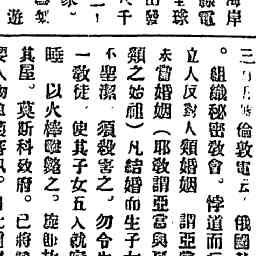 海岸
線電
全球
出發
千
遊
倫敦電云。俄國
。組織秘密敎會。悖道而
立人反對人類婚姻 謂亞當
未嘗婚姻(耶敎謂亞當與
類之始祖)凡結婚而生子
不聖潔。須殺害之。勿令
一敎徒。使其子女五入就
睡 以火棒斃之。旋
其屋。莫斯科政府。已將